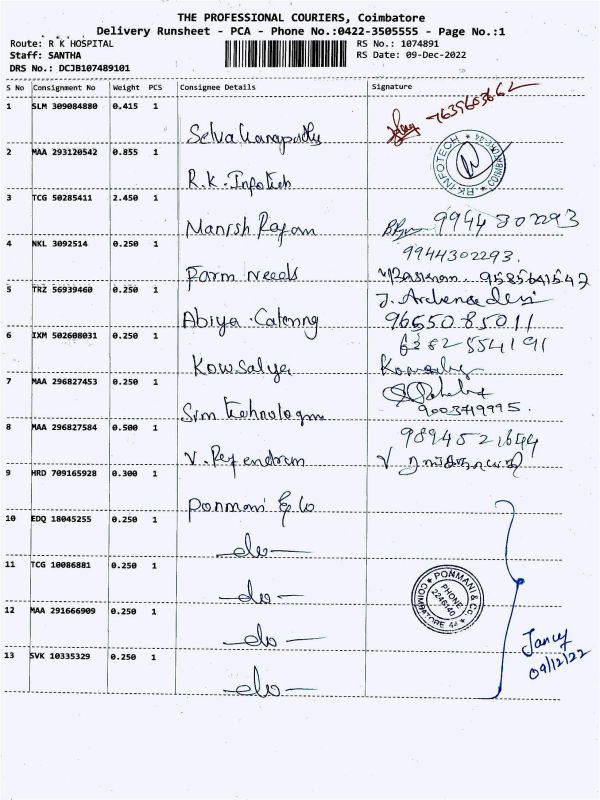 THE PROFESSIONAL COURIERS, Coimbatore
Delivery Runsheet - PCA - Phone No.:0422-3505555 - Page No.:1
Route: R K HOSPITAL
Staff: SANTHA
DRS No.: DCJB107489101
RS No.: 1074891
RS Date: 09-Dec-2022
S No Consignment No Weight PCS Consignee Details Signature
1 SLM 309084880 0.415 1
7635603662
2 MAA 293120542 0.855 1
R.K. Infotech
RK INFOTECH
3 TCG 50285411 2.450 1
Manish Rajam 9944302293
4 NKL 3092514 0.250 1
9944302293.
Farm needs Baskaran 9585641542
5 TRZ 56939460 0.250 1
J. Archana devi
Abiya Catering 9655085011
6 IXM 502608031 0.250 1
6382554191
Kowsalya Kowsalya
7 MAA 296827453 0.250 1
Technologies 9003749995.
8 MAA 296827584 0.500 1
9894521644
V. Rajendram V
9 HRD 709165928 0.300 1
Ponmani & Co
10 EDQ 18045255 0.250 1
do
11 TCG 10086881 0.250 1
do
PONMANI & CO.
PHONE
2246140
COIMBATORE 44
12 MAA 291666909 0.250 1
do
Jancy
09/12/22
13 SVK 10335329 0.250 1
do